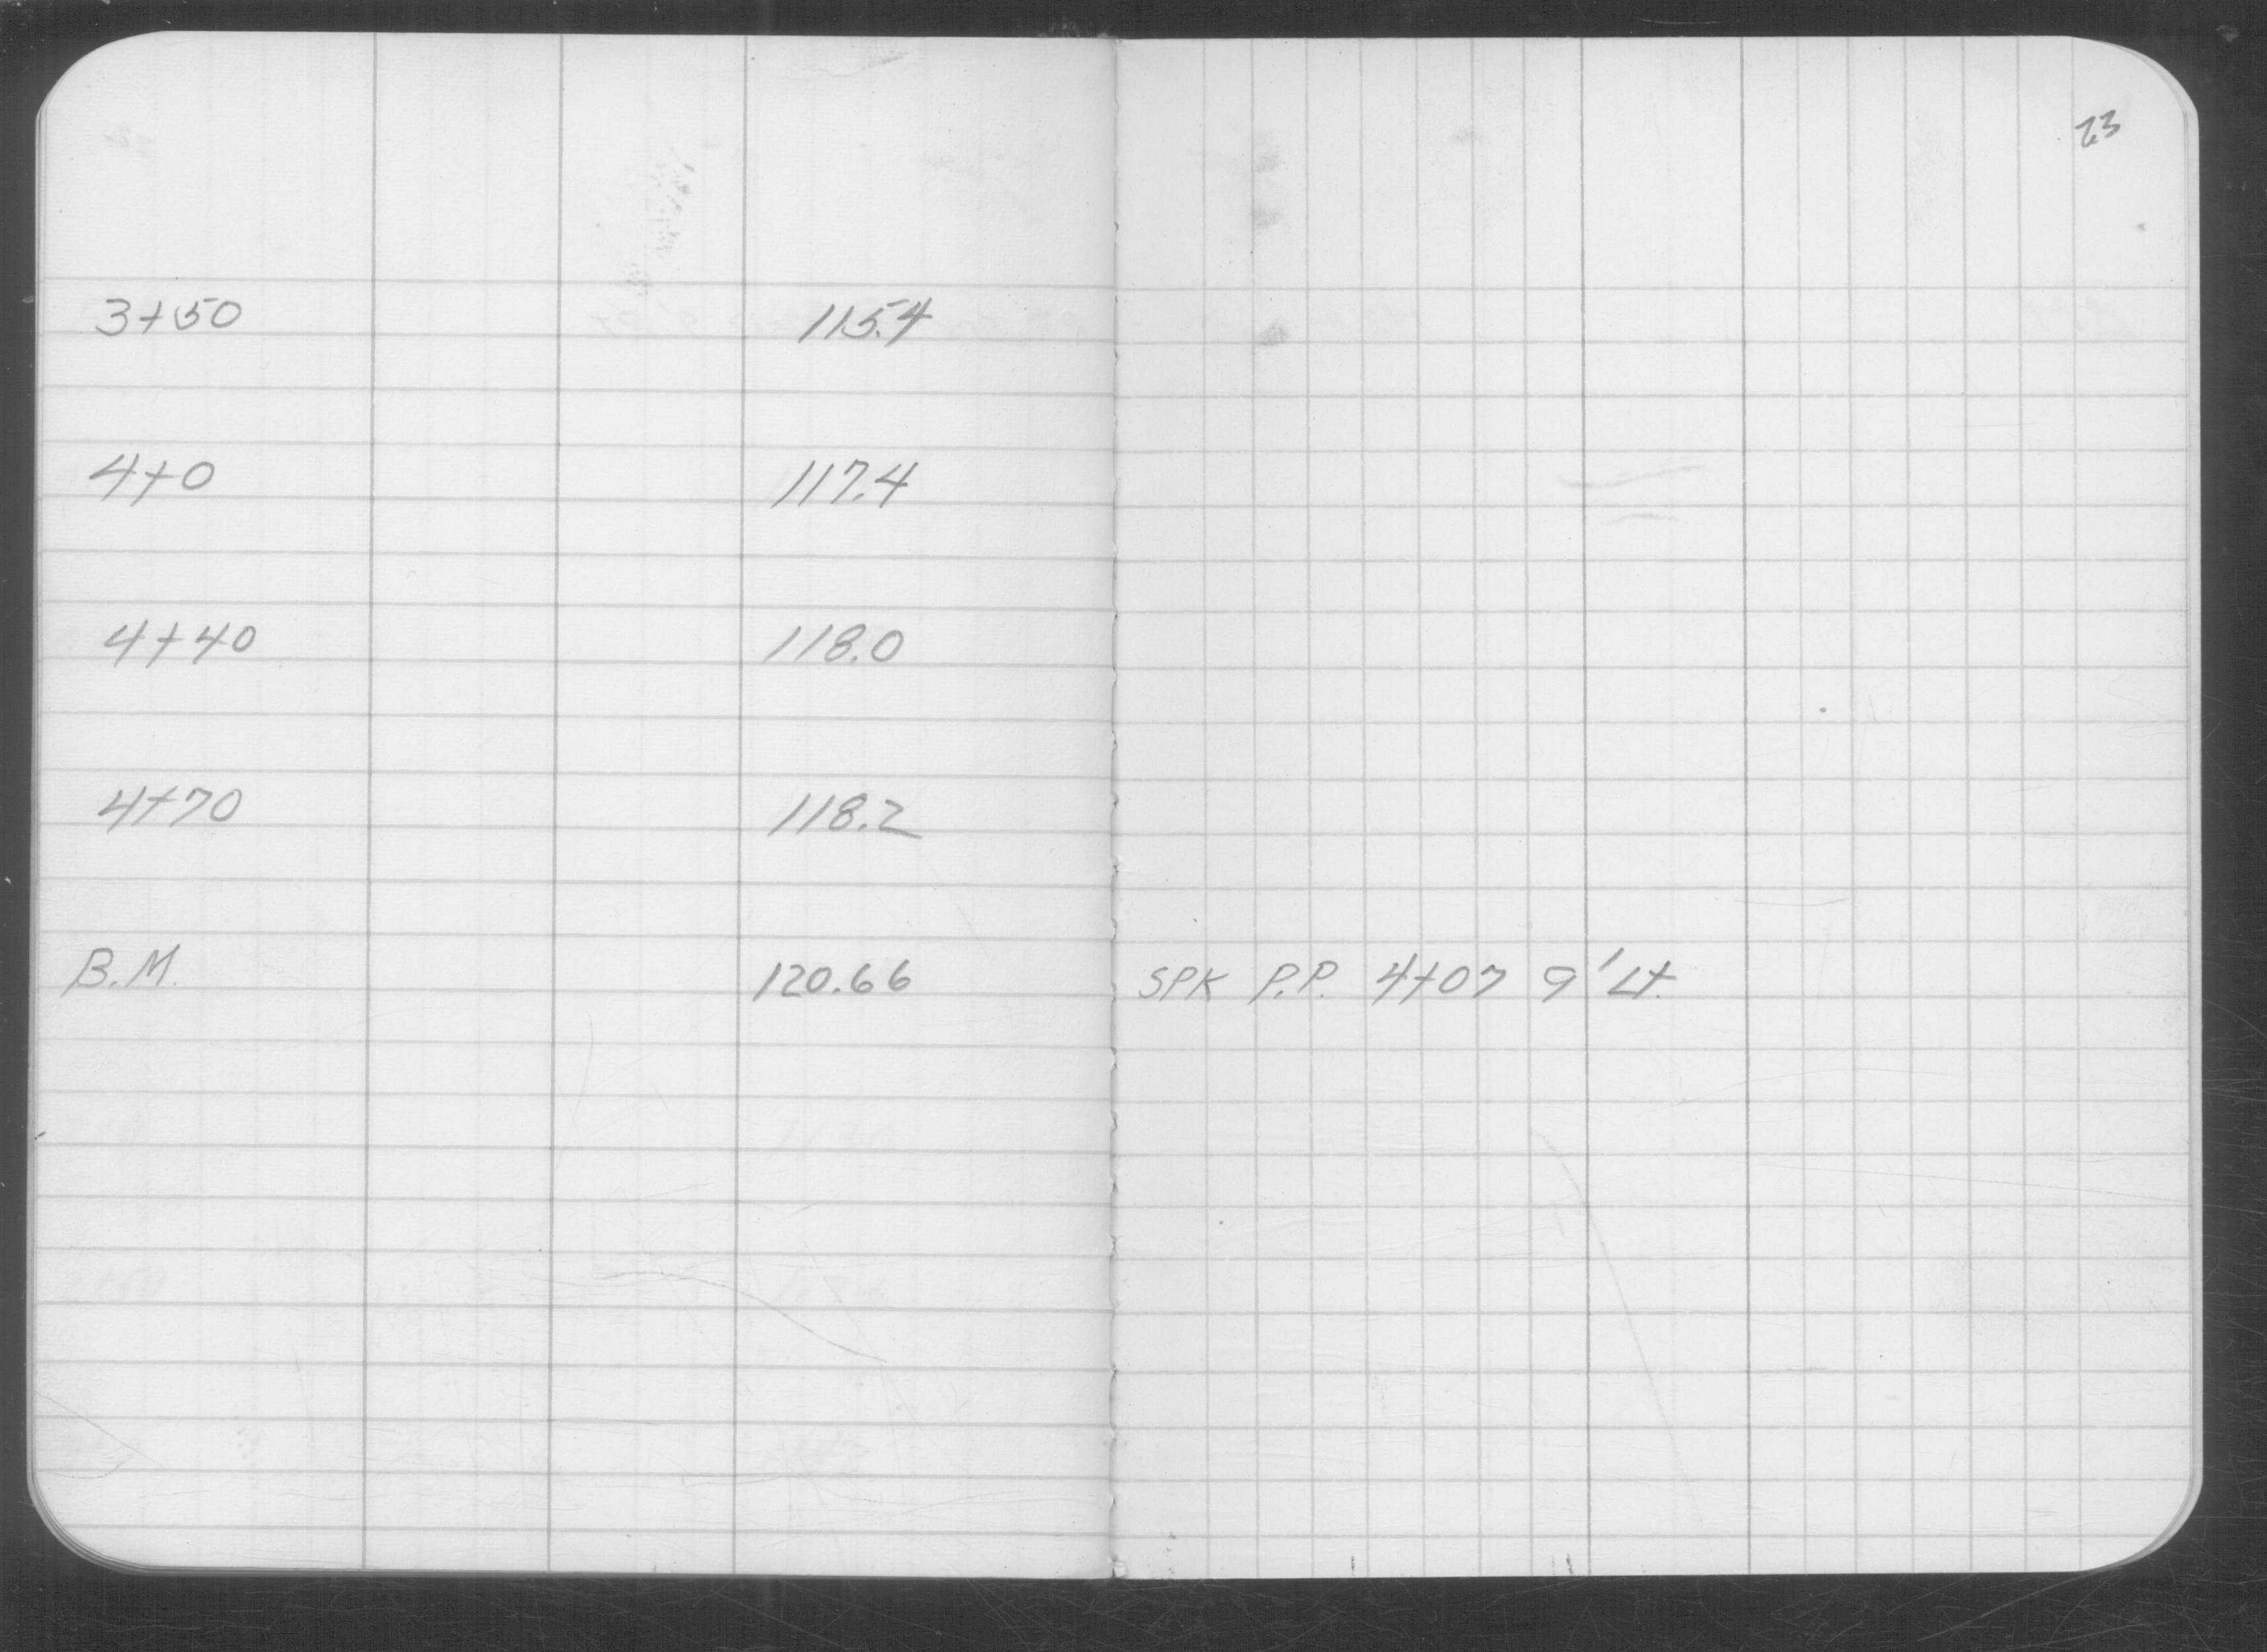 23
3+50 115.4
4+0 117.4
4+40 118.0
4+70 118.2
B.M. 120.66 SPK P.P. 4+07 9' Lt.